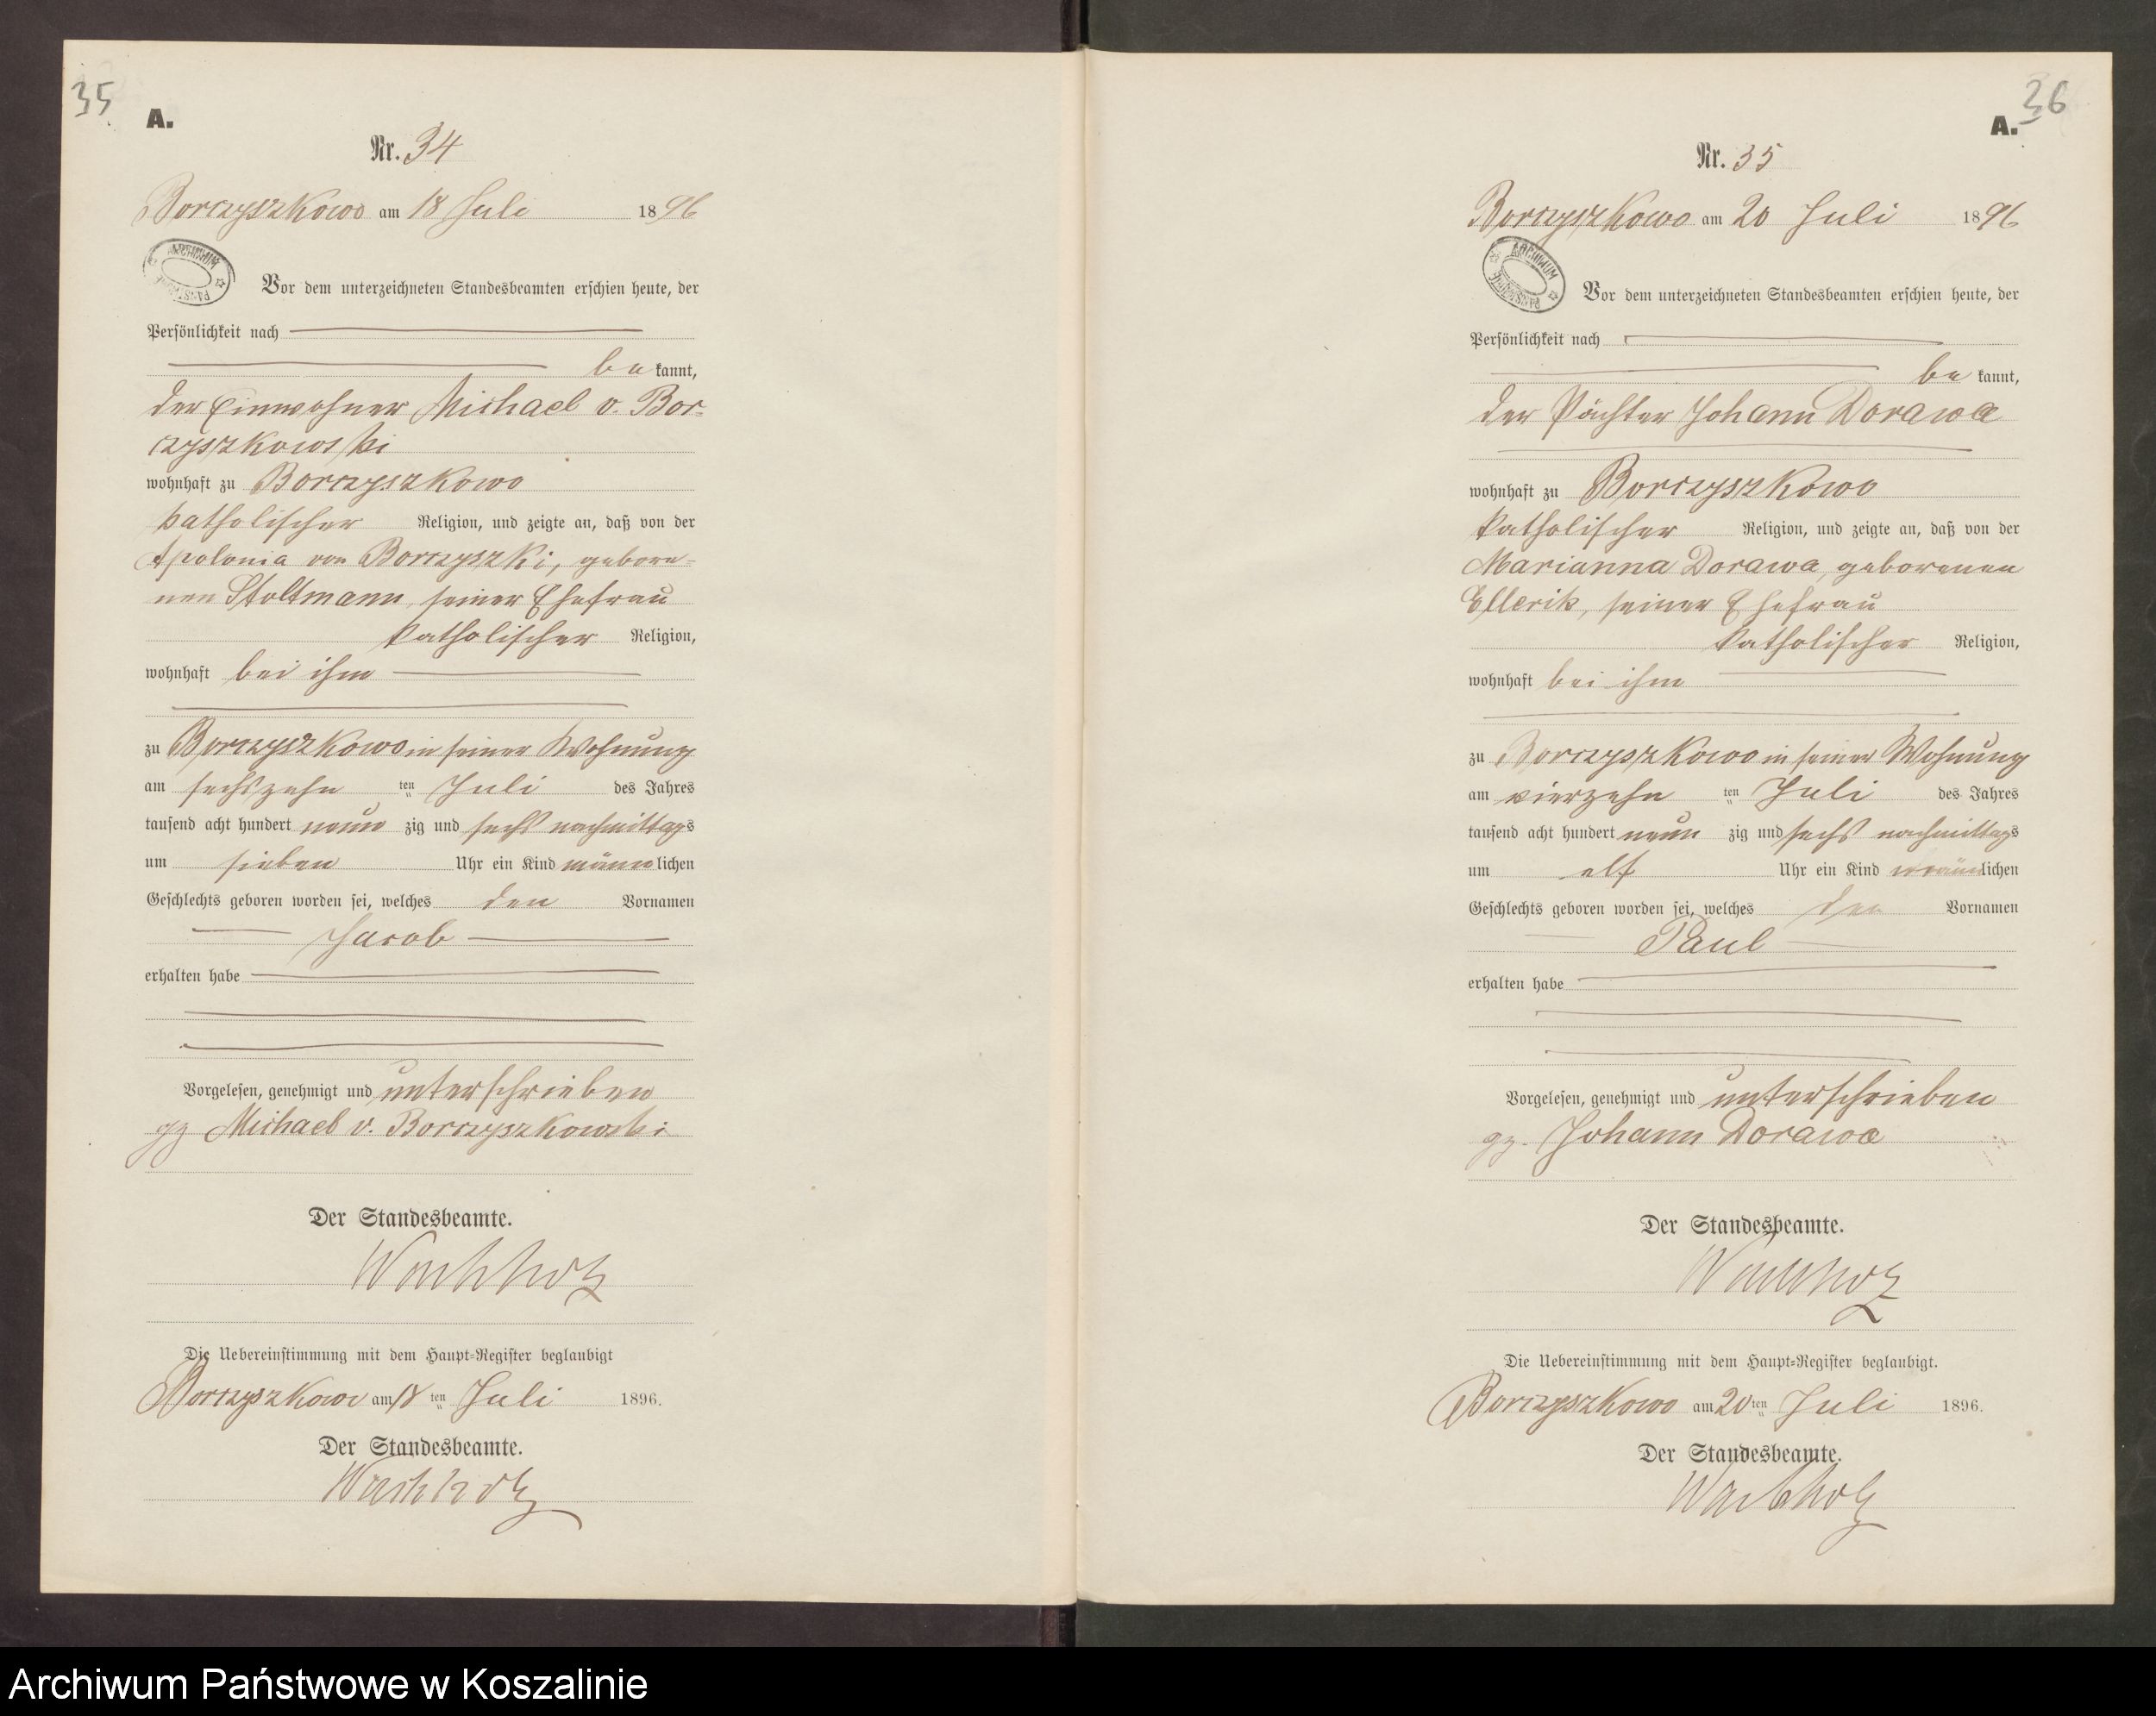 35
A.
Nr. 34
Borczyszkowo am 18 Juli 1896
ARCHIWUM
Vor dem unterzeichneten Standesbeamten erschien heute, der
Persönlichkeit nach
be kannt,
der Einwohner Michael v. Bor-
czyszkowski
wohnhaft zu Borczyszkowo
katholischer Religion, und zeigte an, daß von der
Apolonia von Borczyszki, gebore-
nen Stoltmann, seiner Ehefrau
katholischer Religion,
wohnhaft bei ihm
zu Borczyszkowo in seiner Wohnung
am sechszehn ten Juli des Jahres
tausend acht hundert neun zig und sechs nachmittags
um sieben Uhr ein Kind männlichen
Geschlechts geboren worden sei, welches den Vornamen
Jacob
erhalten habe
Vorgelesen, genehmigt und unterschrieben
gz Michael v. Borczyszkowski
Der Standesbeamte.
Wachholz
Die Uebereinstimmung mit dem Haupt-Register beglaubigt
Borczyszkowo am 18 ten Juli 1896.
Der Standesbeamte.
Wachholz
36
A.
Nr. 35
Borczyszkowo am 20 Juli 1896
ARCHIWUM
Vor dem unterzeichneten Standesbeamten erschien heute, der
Persönlichkeit nach
be kannt,
der Pächter Johann Dorawa
wohnhaft zu Borczyszkowo
katholischer Religion, und zeigte an, daß von der
Marianna Dorawa, geborenen
Ellerik, seiner Ehefrau
katholischer Religion,
wohnhaft bei ihm
zu Borczyszkowo in seiner Wohnung
am vierzehn ten Juli des Jahres
tausend acht hundert neun zig und sechs nachmittags
um elf Uhr ein Kind männlichen
Geschlechts geboren worden sei, welches den Vornamen
Paul
erhalten habe
Vorgelesen, genehmigt und unterschrieben
gz. Johann Dorawa
Der Standesbeamte.
Wachholz
Die Uebereinstimmung mit dem Haupt-Register beglaubigt.
Borczyszkowo am 20 ten Juli 1896.
Der Standesbeamte.
Wachholz
Archiwum Państwowe w Koszalinie